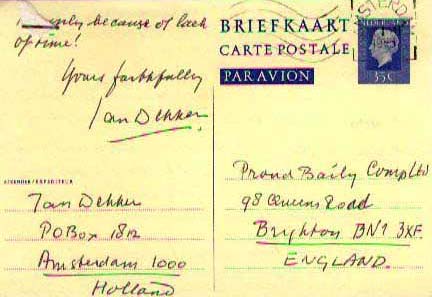 only because of lack
of time!
Yours faithfully
Jan Dekker
AFZENDER/EXPEDITEUR
Jan Dekker
PO Box 1812
Amsterdam 1000
Holland
BRIEFKAART
CARTE POSTALE
PAR AVION
NEDERLAND
35c
Proud Baily Comp Ltd
98 Queens Road
Brighton BN1 3XF.
ENGLAND.